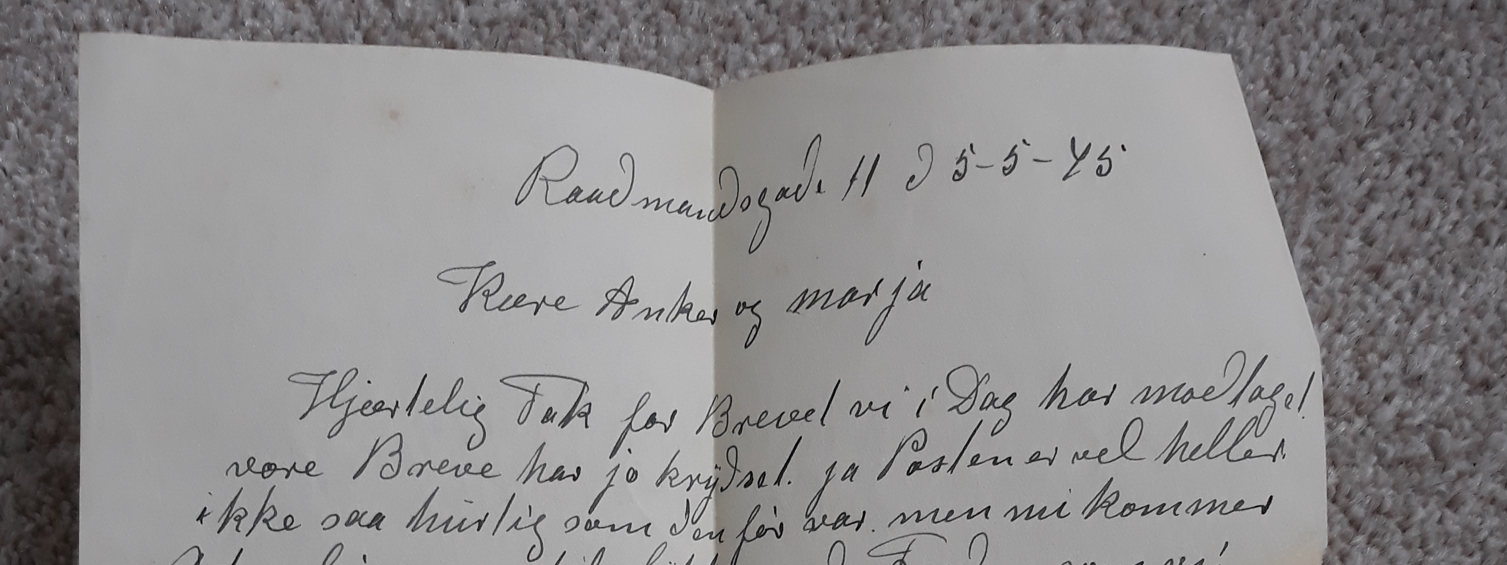 Raadmandsgade 11 d 5-5-45
Kære Anker og marja
Hjærtelig Tak for Brevet vi i Dag har modtaget.
vore Breve har jo krydset. ja Posten er vel heller
ikke saa hurtig som den før var. men nu kommer